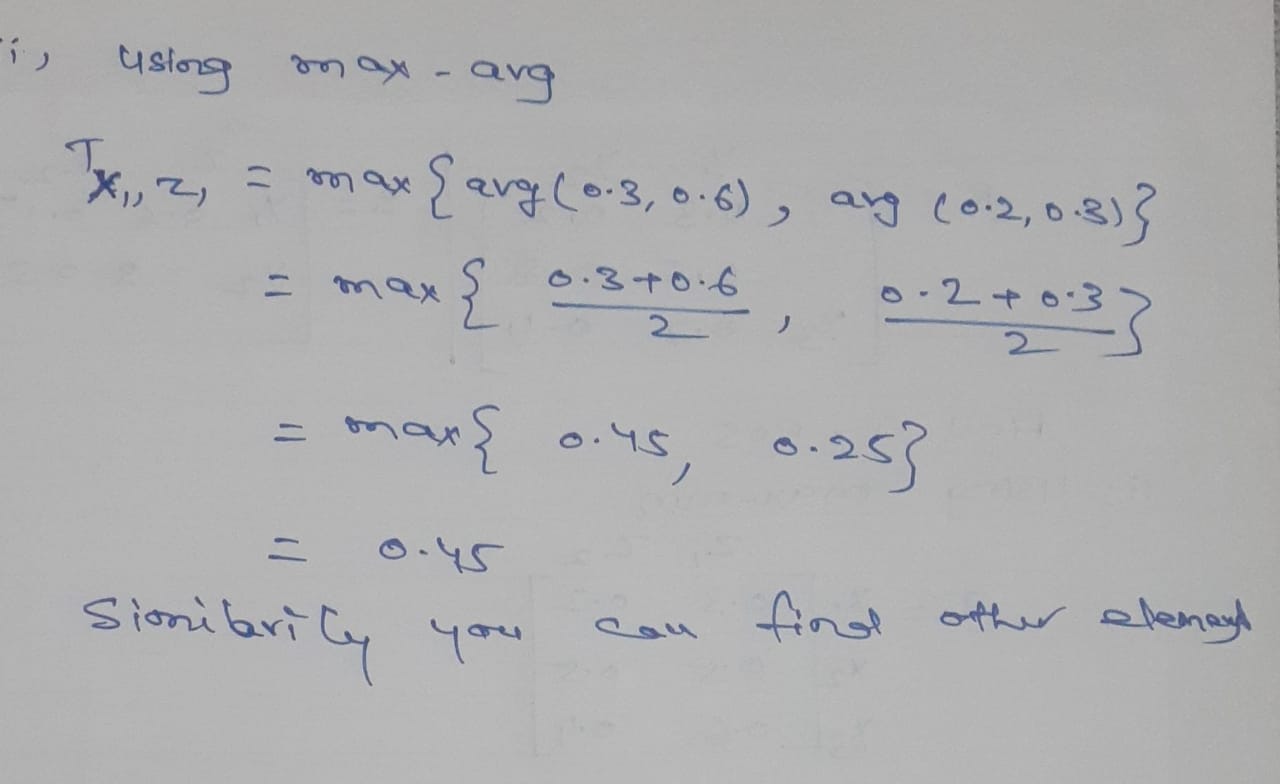 i, using max - avg
T x₁, z₁ = max { avg (0.3, 0.6), avg (0.2, 0.3)}
= max { 0.3+0.6 / 2 , 0.2+0.3 / 2 }
= max { 0.45, 0.25}
= 0.45
Similarily you can find other element